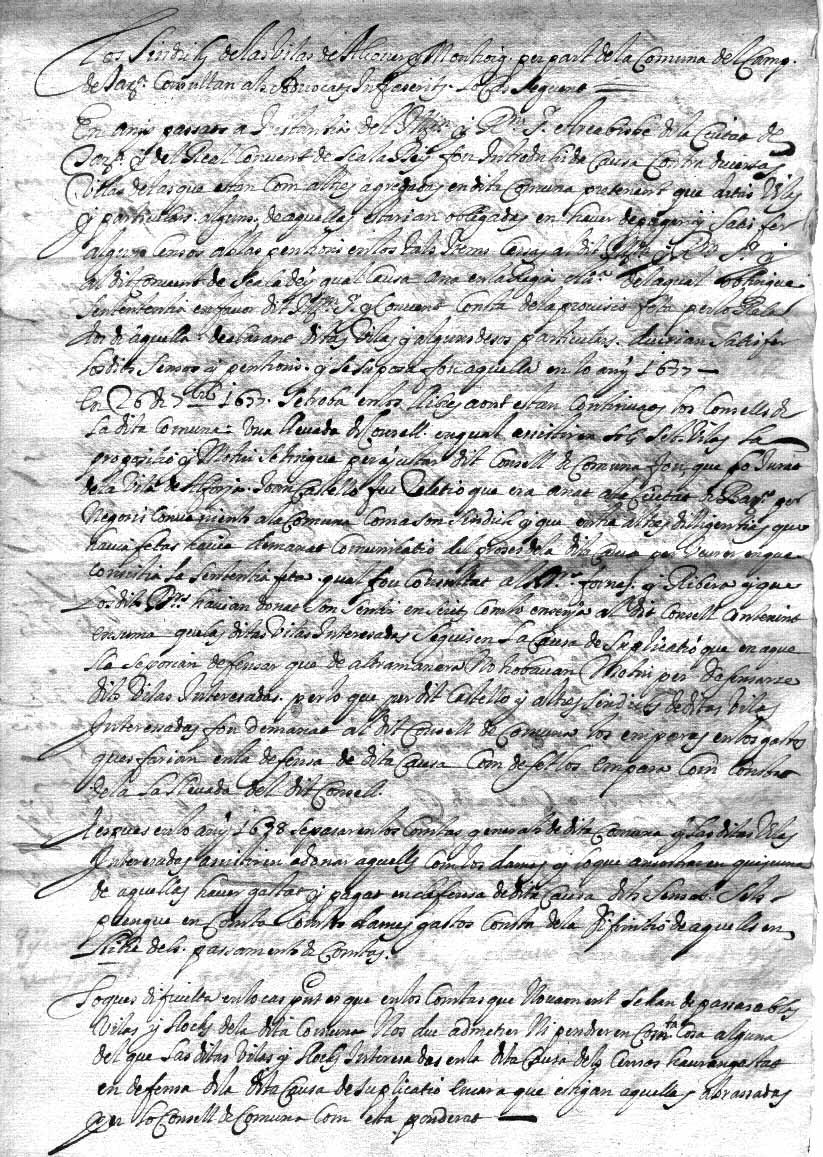 Los Sindichs de las Vilas de Alcover y Montroig per part de la Comuna del Camp
de Tarr.ª Consultan als Advocats Infrascrits lo Cas seguent
En anys passats a Instantia del Ill.m y R.m S.r Arcabisbe de la Ciutat de
Tarr.ª y del Real Convent de Scala Dei fou Introduhida Causa Contra diversas
Vilas de las que estan Com altres agregadas en dita Comuna pretenent que ditas Vilas
y particulars alguns de aquellas estarian obligadas en haver de pagar y satisfer
alguns Censos ab las pentions en los tals Termes Caygudas al dit Ill.m y R.m S.r y
al dit Convent de Scala dei qual Causa ana en la Regia Au.ª de la qual obtingue
Sententia en favor dit Ill.m S.r y Convent Consta de la provisio feta per lo Rela
dor de aquella declarant ditas Vilas y alguns de sos particulars deurian satisfer
los dits Sensos y pentions y se suposa fou aquella en lo any 1637
Lo 26 de 7bre 1637 se troba en los llibres aont estan Continuats los Consells de
la dita Comuna Una llevada de Consell en qual assistiren Vilas La
propositio y Motiu se tingue per ajustar dit Consell de Comuna fou que lo Jurat
de la Vila de Alforja Joan Castello feu Relatio que era anat a la Ciutat de Bar.ª per
Negocis Convenients a la Comuna Com a son Sindich y que entre altres diligentias que
havia fetas havia demanat Comunicatio del proces de la dita Causa per veurer en que
Consistia la Sententia feta qual fou Consultat als M.rs fornes y Ribera y que
los dits D.rs havian donat son sentir en scrits Com lo ensenya al dit Consell Contenint
en suma que las ditas Vilas Interesadas seguissen la Causa de Suplicatio que en aque
lla se porian defensar que de altra manera No trobavan Motiu per defensarse
dits Vilas Interesadas per lo que per dit Castello y altres Sindichs de ditas Vilas
Interessadas fou demanat al dit Consell de Comuna los emparas en los gastos
ques farian en la defensa de dita Causa Com de fet los Empara Com Consta
de la Llevada del dit Consell.
Despues en lo any 1638 se passaren los Comtes generals de dita Comuna y las ditas Vilas
Interesadas assistiren a donar aquells Com los demes y lo que amostraren quiscuna
de aquellas haver gastat y pagat en defensa de dita Causa dels Sensos Sels
prengue en Comte Com los demes gastos Consta de la difinitio de aquells en
llibre dels passaments de Comtes.
Lo ques dificulta en lo cas p.nt es que en los Comtes que Novament se han de passar a las
Vilas y llochs de la dita Comuna Nos deu admetrer Ni pendrer en Comte Cosa alguna
del que las ditas Vilas y llochs Interesadas en la dita Causa dels Censos hauran gastat
en defensa de la dita Causa de Suplicatio encara que estigan aquellas abrassadas
per lo Consell de Comuna Com esta ponderat